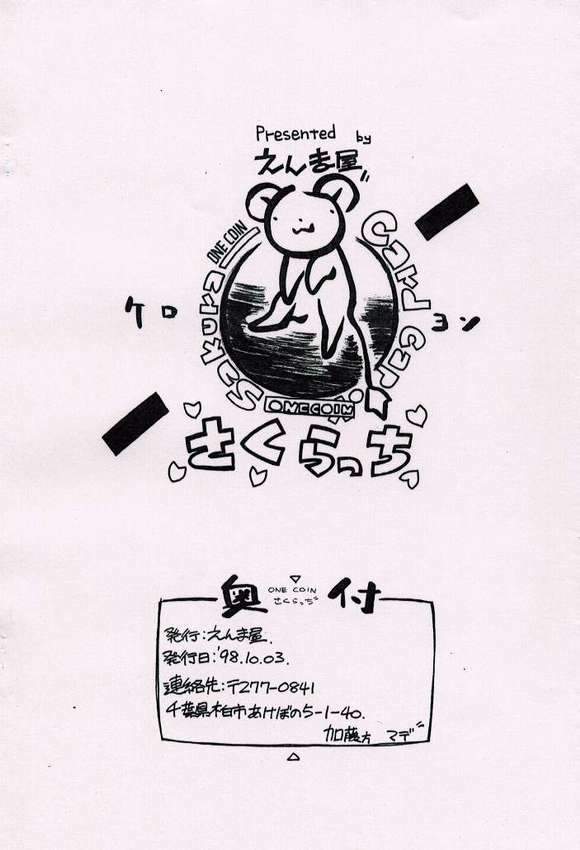 Presented by
えんま屋"
ONE COIN
Card Captor
Sakura
ケロ
ヨン
ONECOIN
さくらっち
奥付
ONE COIN
さくらっち"
発行:えんま屋.
発行日:'98.10.03.
連絡先:〒277-0841
千葉県柏市あけぼの5-1-40.
加藤方 マデ"